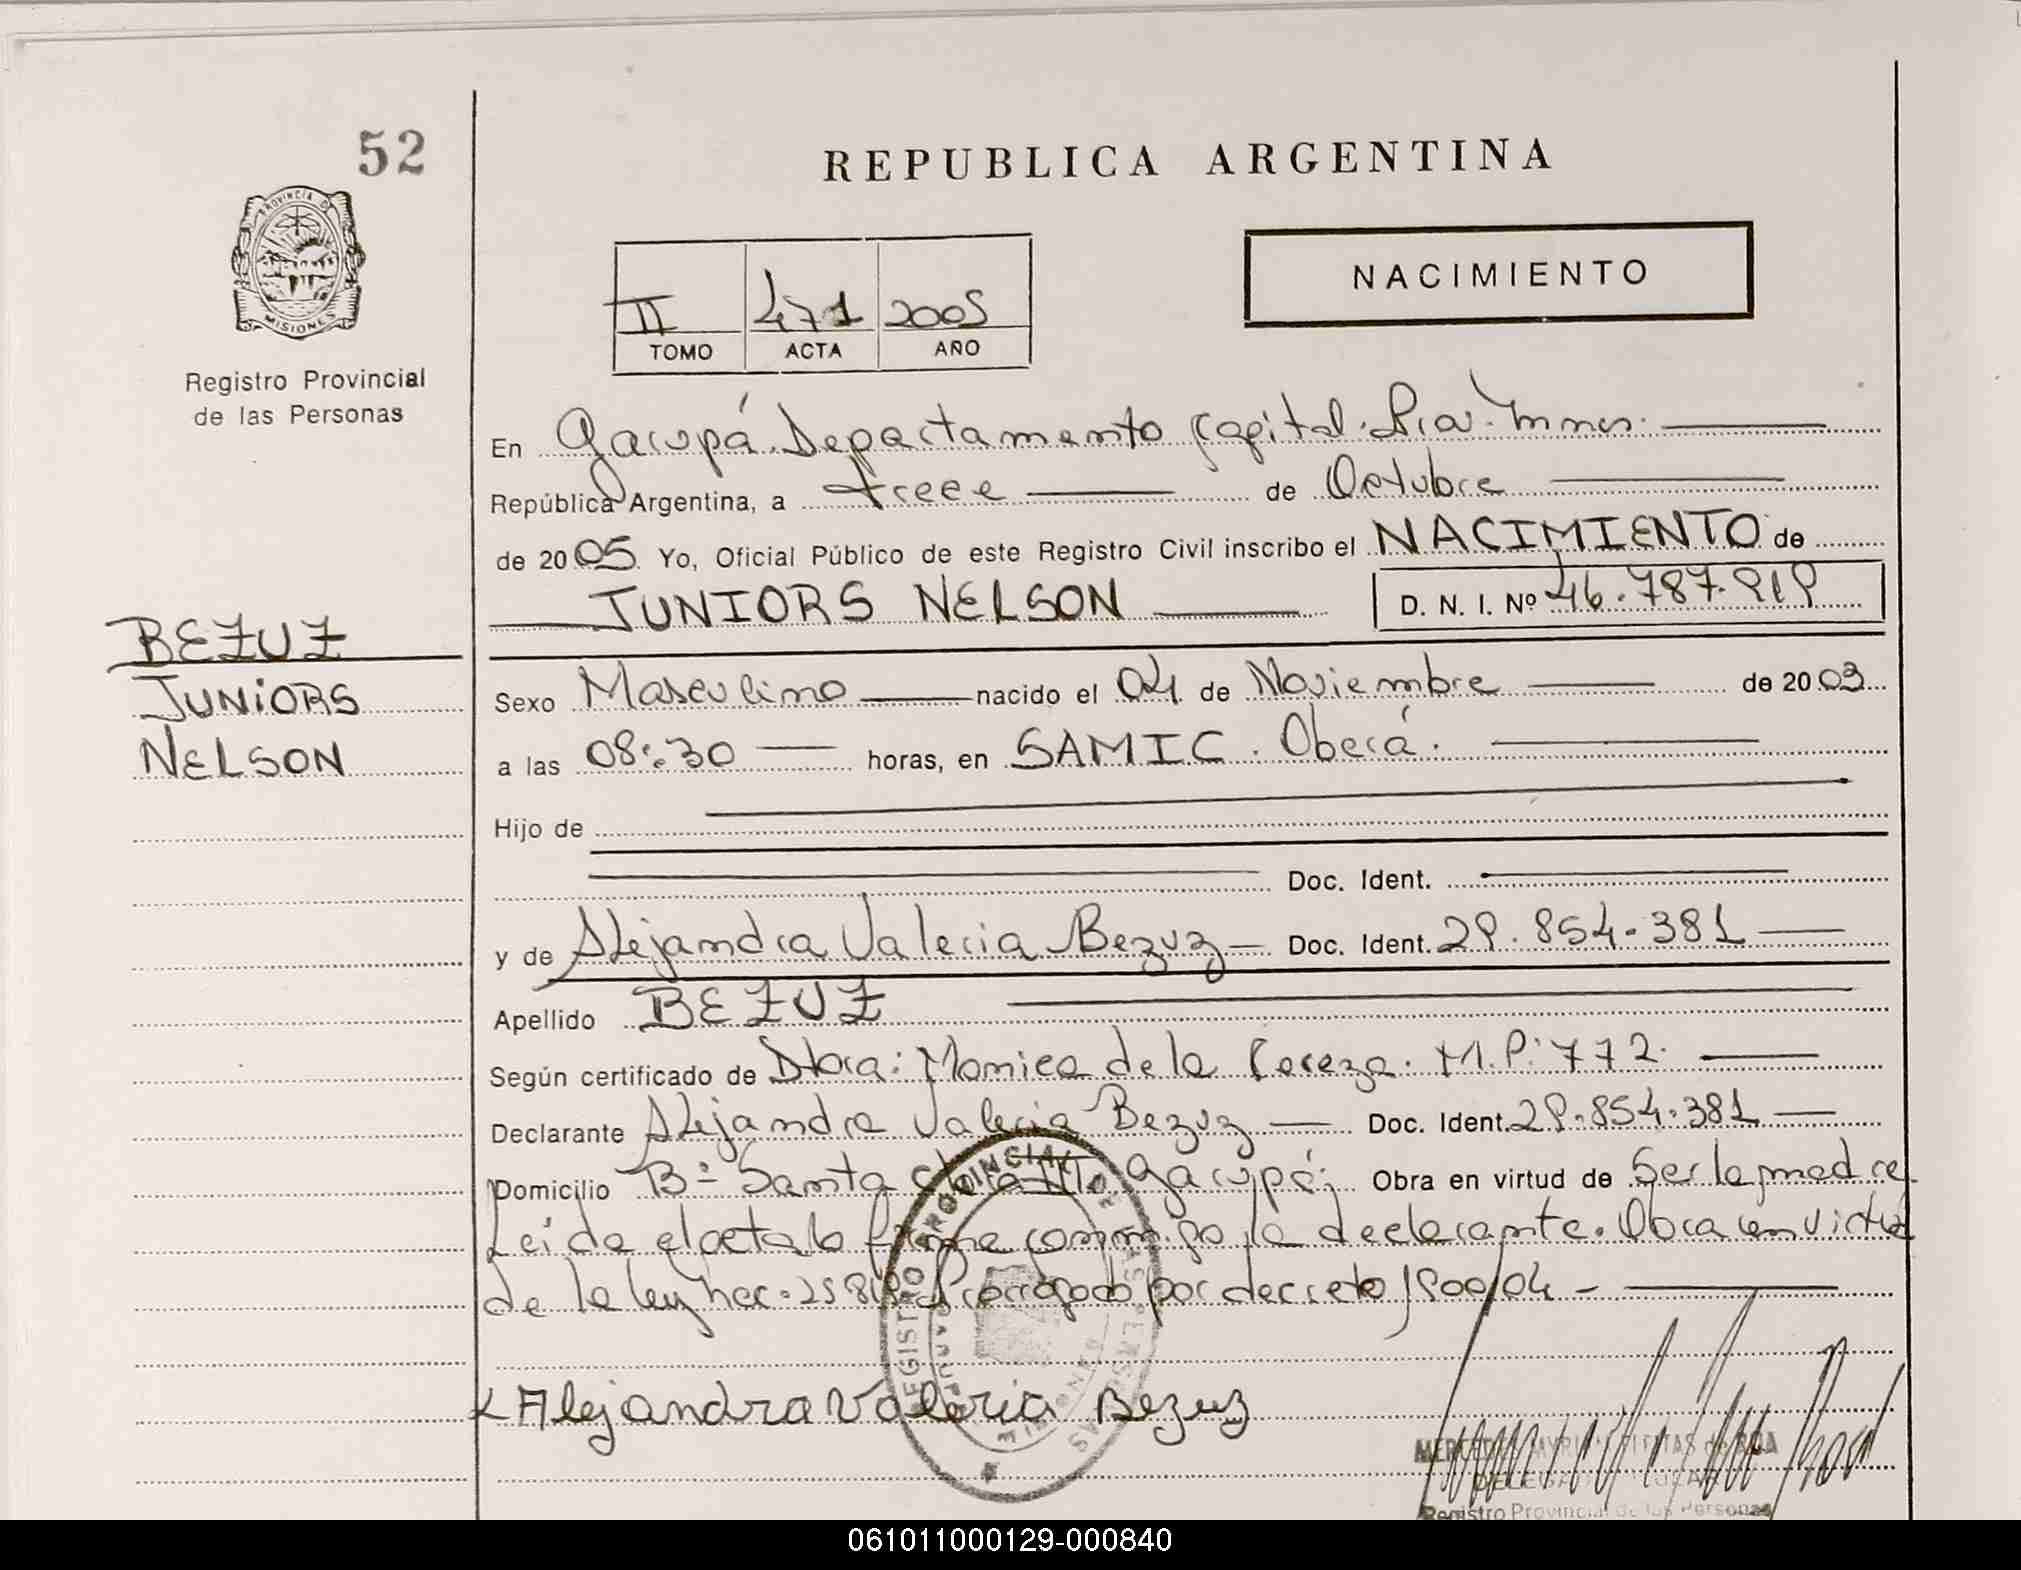 52
REPUBLICA ARGENTINA
PROVINCIA DE
MISIONES
Registro Provincial
de las Personas
NACIMIENTO
II 471 2005
TOMO ACTA AÑO
En Garupá. Departamento Capital. Pcia. Mnes.
República Argentina, a trece de Octubre
de 2005. Yo, Oficial Público de este Registro Civil inscribo el NACIMIENTO de
JUNIORS NELSON D. N. I. Nº 46.787.919
BEZUZ
JUNIORS
NELSON
Sexo Masculino nacido el 04 de Noviembre de 2003
a las 08:30 horas, en SAMIC. Oberá.
Hijo de
Doc. Ident.
y de Alejandra Valeria Bezuz Doc. Ident. 29.854.381
Apellido BEZUZ
Según certificado de Dtora: Monica de la M.P: 772.
Declarante Alejandra Valeria Bezuz Doc. Ident. 29.854.381
Domicilio Bº Santa Garupá. Obra en virtud de Ser la madre.
Leida el acta la firma conmigo la declarante. Obra en virtud
de la ley nac. 25819 Prorrogado por decreto 1800/04 -
REGISTRO PROVINCIAL DE LAS PERSONAS
MISIONES
Alejandra Valeria Bezuz
MERCEDES MYRIAN de BOA
Registro Provincial de las Personas
061011000129-000840